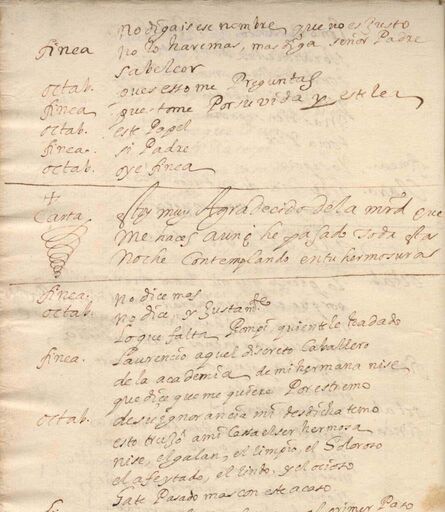 no digais ese nombre que no es Justo
finea no lo hare mas, mas diga señor Padre
sabe leer
octab. pues esto me Preguntas
finea que tome Por su vida y este lea
octab. este Papel
finea. si Padre
octab. oye finea
Carta Estoy muy Agradecido de la mrd que
Me haces aunq̄ he pasado toda esta
Noche Contemplando en tu hermosura
finea. no dice mas
octab. no dice, y Justamte
lo que falta Rompi, quien te le ha dado
finea. Laurencio aquel discreto Caballero
de la academia de mi hermana nise
que dice que me quiere Por estremo
octab. de su ignorancia mi desdicha temo
esto trujo a mi Casa el ser hermosa
nise, el galan, el limpio, el oloroso
el afeytado, el lindo, y el ocioso
te a Pasado mas con este acaso
el primer Paso